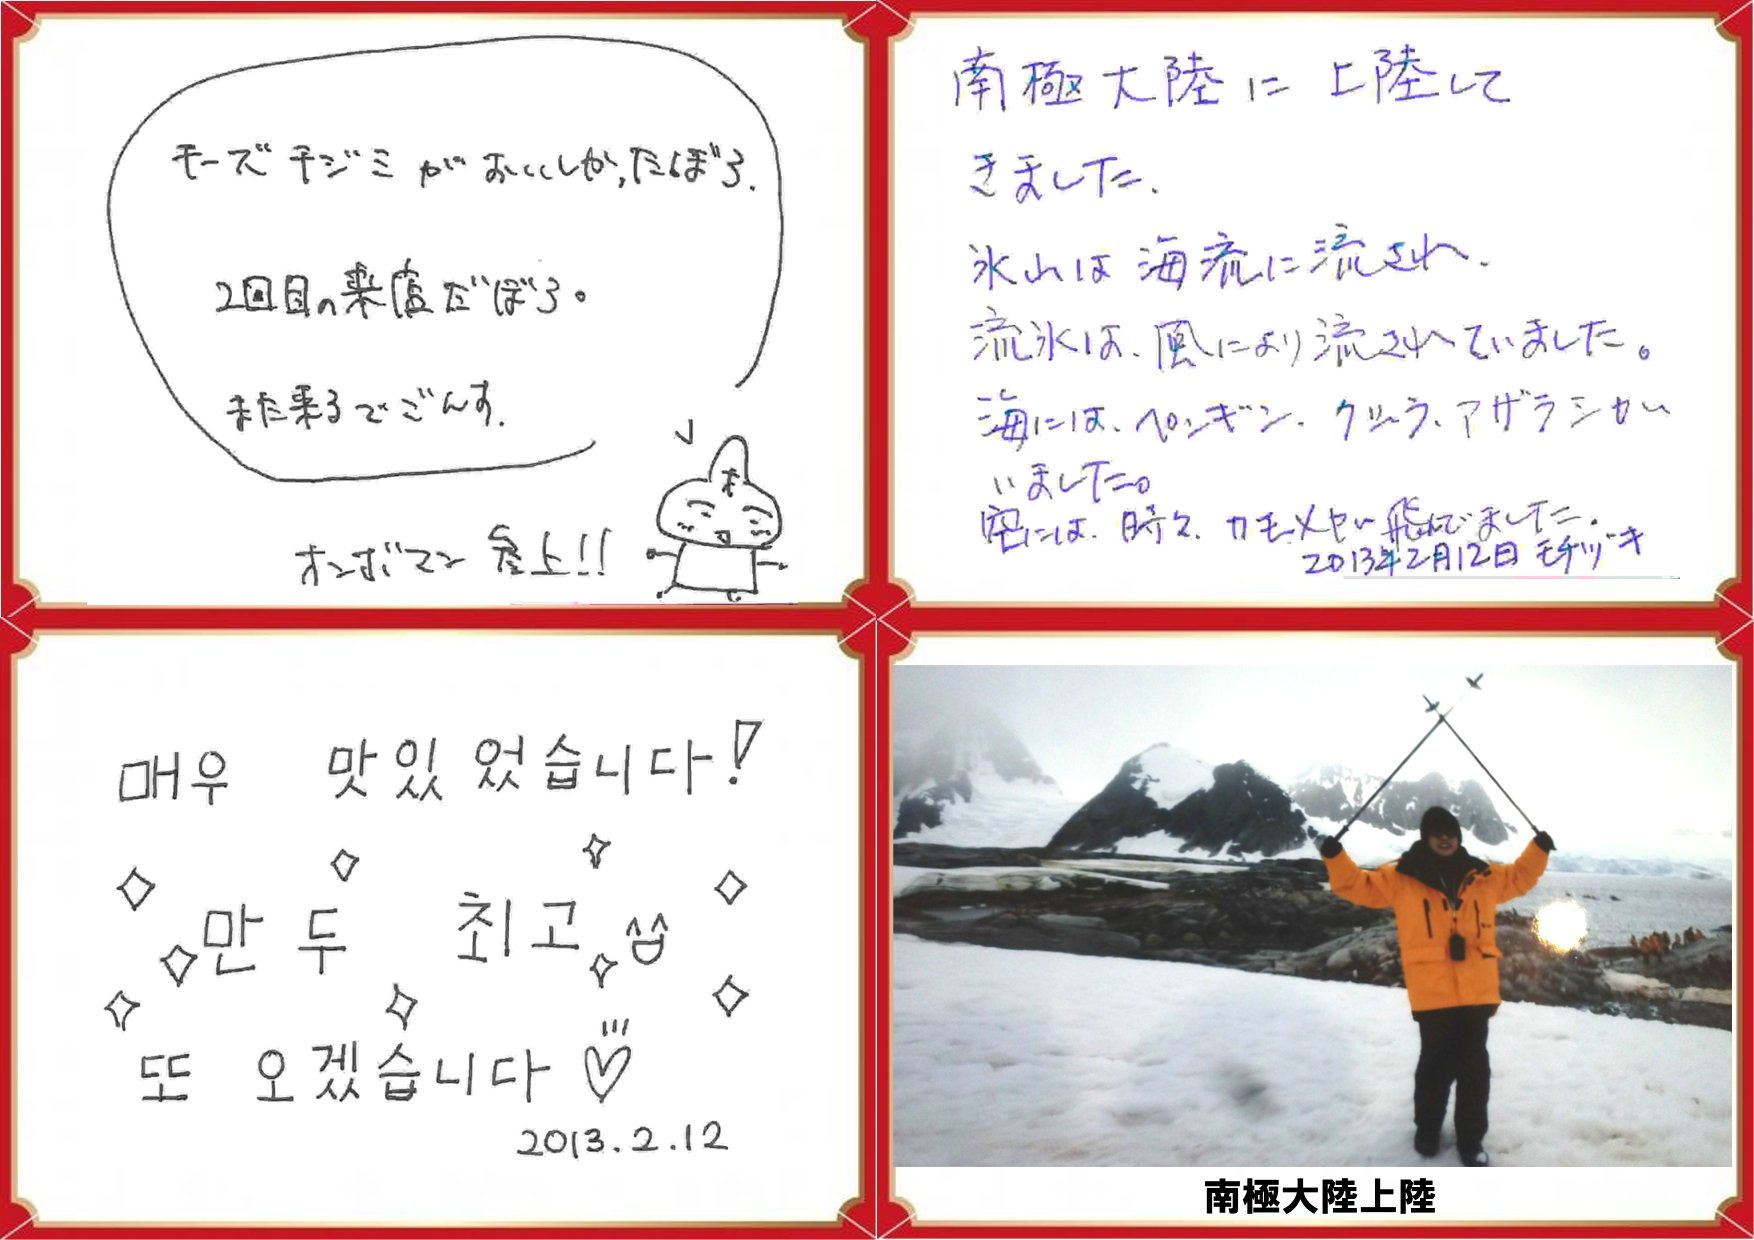 チーズチヂミがおいしかったぼろ.
2回目の来店だぼろ。
また来るでごんす.
オンボマン 参上!!
南極大陸に上陸して
きました.
氷山は海流に流され、
流氷は、風により流されていました。
海には、ペンギン、クジラ、アザラシが
いました。
空には、時々、カモメが飛んでました.
2013年2月12日 モチヅキ
매우 맛있었습니다!
만두 최고
또 오겠습니다♡
2013.2.12
南極大陸上陸